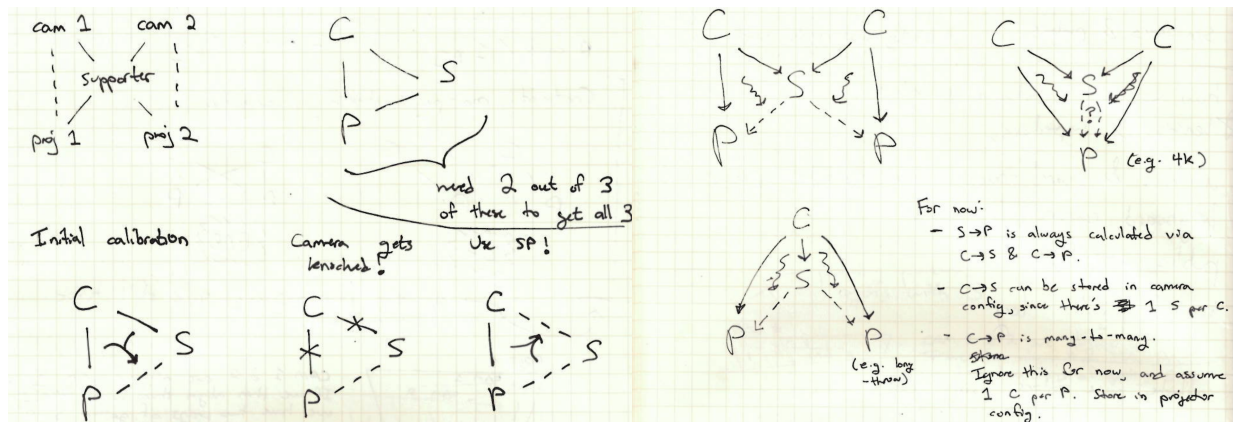 cam 1 cam 2
supporter
proj 1 proj 2
C
S
P
need 2 out of 3
of these to get all 3
Initial calibration
Camera gets
knocked!
Use SP!
C
S
P
C
S
P
C
S
P
C C
S
P P
C C
S
?
P
(e.g. 4k)
C
S
P P
(e.g. long
-throw)
For now:
- S→P is always calculated via
C→S & C→P.
- C→S can be stored in camera
config, since there's 1 S per C.
- C→P is many-to-many.
Ignore this for now, and assume
1 C per P. Store in projector
config.